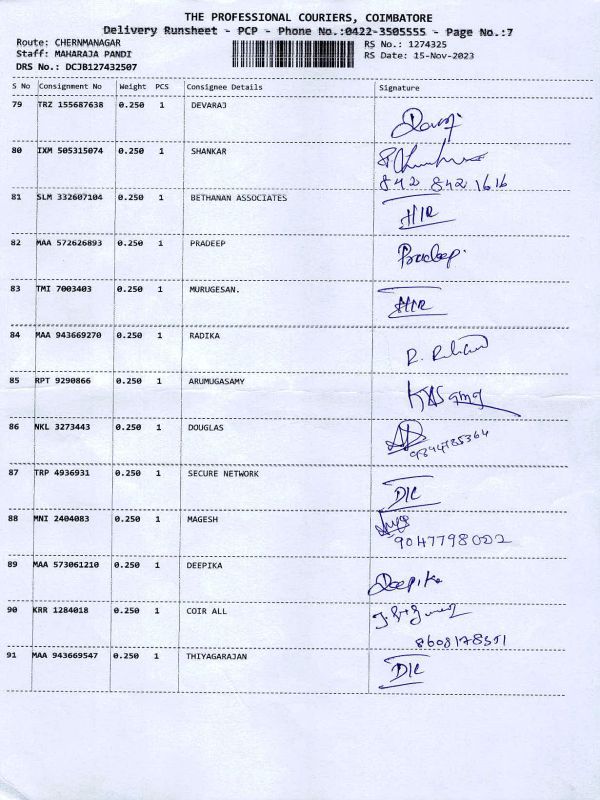 THE PROFESSIONAL COURIERS, COIMBATORE
Delivery Runsheet - PCP - Phone No.:0422-3505555 - Page No.:7
Route: CHERNMANAGAR
Staff: MAHARAJA PANDI
DRS No.: DCJB127432507
RS No.: 1274325
RS Date: 15-Nov-2023
S No Consignment No Weight PCS Consignee Details Signature
79 TRZ 155687638 0.250 1 DEVARAJ
80 IXM 505315074 0.250 1 SHANKAR
842 842 1616
81 SLM 332607104 0.250 1 BETHANAN ASSOCIATES
82 MAA 572626893 0.250 1 PRADEEP Pradeep.
83 TMI 7003403 0.250 1 MURUGESAN.
84 MAA 943669270 0.250 1 RADIKA
85 RPT 9290866 0.250 1 ARUMUGASAMY
86 NKL 3273443 0.250 1 DOUGLAS
9844785364
87 TRP 4936931 0.250 1 SECURE NETWORK
88 MNI 2404083 0.250 1 MAGESH
9047798022
89 MAA 573061210 0.250 1 DEEPIKA Deepika
90 KRR 1284018 0.250 1 COIR ALL
91 MAA 943669547 0.250 1 THIYAGARAJAN